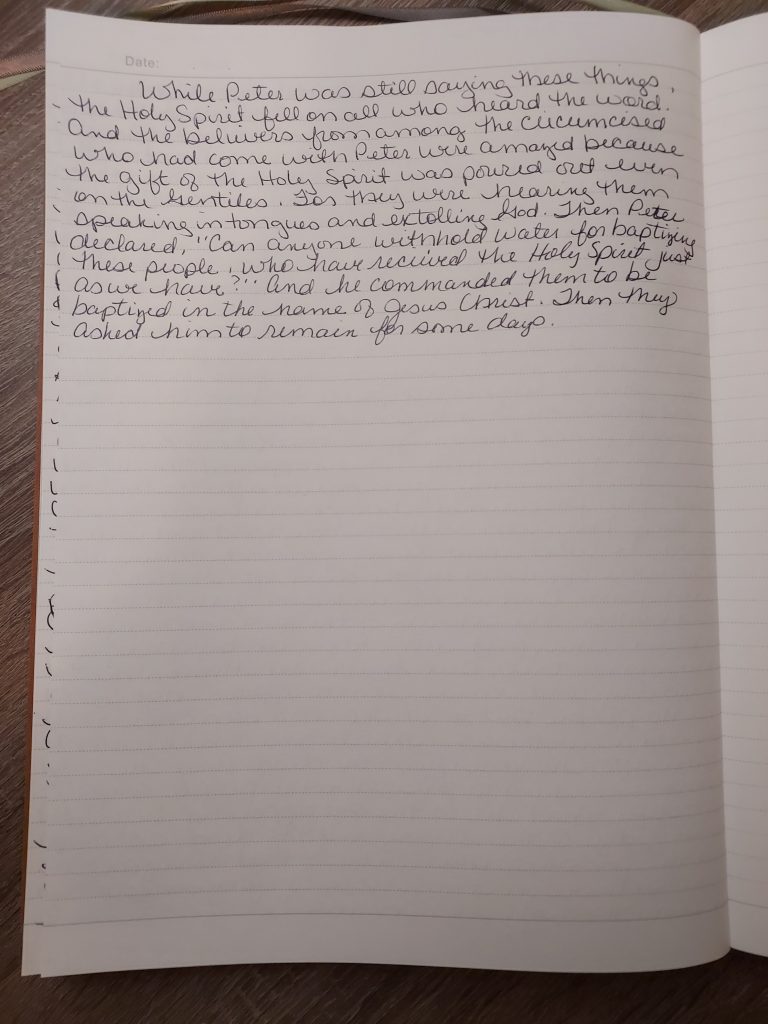 Date:
While Peter was still saying these things,
the Holy Spirit fell on all who heard the word.
And the belivers from among the cucumcised
who had come with Peter were amazed because
the gift of the Holy Spirit was poured out even
on the Gentiles. For they were hearing them
speaking in tongues and extolling God. Then Peter
declared, "Can anyone withhold water for baptizing
these people, who have recieved the Holy Spirit just
as we have?" And he commanded them to be
baptized in the name of Jesus Christ. Then they
asked him to remain for some days.